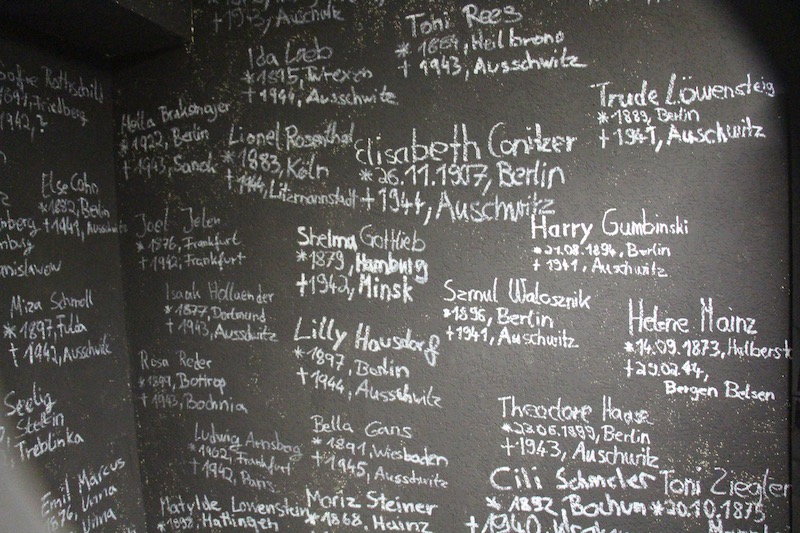 † 1943, Auschwitz
Toni Rees
* 1889, Heilbronn
† 1943, Ausschwitz
Ida Loeb
* 1895, Wrexen
† 1944, Ausschwitz
Trude Löwensteig
* 1889, Berlin
† 1941, Auschwitz
Sofie Rothschild
1897, Friedberg
1942, ?
1922, Berlin
† 1943, Sanok
Lionel Rosenthal
* 1883, Köln
† 1944, Litzmannstadt
Elisabeth Conitzer
* 26.11.1907, Berlin
† 1944, Auschwitz
Else Cohn
* 1892, Berlin
† 1941, Auschwitz
Joel Jelen
* 1876, Frankfurt
† 1942, Frankfurt
Shelma Gottlieb
* 1879, Hamburg
† 1942, Minsk
Harry Gumbinski
* 21.08.1894, Berlin
† 1941, Auschwitz
Isaak Hollaender
* 1877, Dortmund
† 1943, Ausschwitz
Szmul Walosznik
* 1896, Berlin
† 1941, Auschwitz
Helene Mainz
* 14.09.1873, Halberst
† 29.02.44,
Bergen Belsen
Miza Schmoll
* 1897, Fulda
† 1942, Auschwitz
Lilly Hausdorf
* 1897, Berlin
† 1944, Ausschwitz
Rosa Reder
* 1899, Bottrop
† 1943, Bochnia
Seelig
Stettin
Treblinka
Theodore Haase
* 23.06.1899, Berlin
† 1943, Auschwitz
Bella Gans
* 1891, Wiesbaden
† 1945, Ausschwitz
Ludwig Arnsberg
* 1902, Frankfurt
† 1942, Paris
Emil Marcus
1876, Unna
Unna
Cili Schmeler
* 1892, Bochum
† 1940,
Toni Ziegler
* 20.10.1875
Matylde Lowenstein
* 1898, Hattingen
Moriz Steiner
* 1868, Mainz